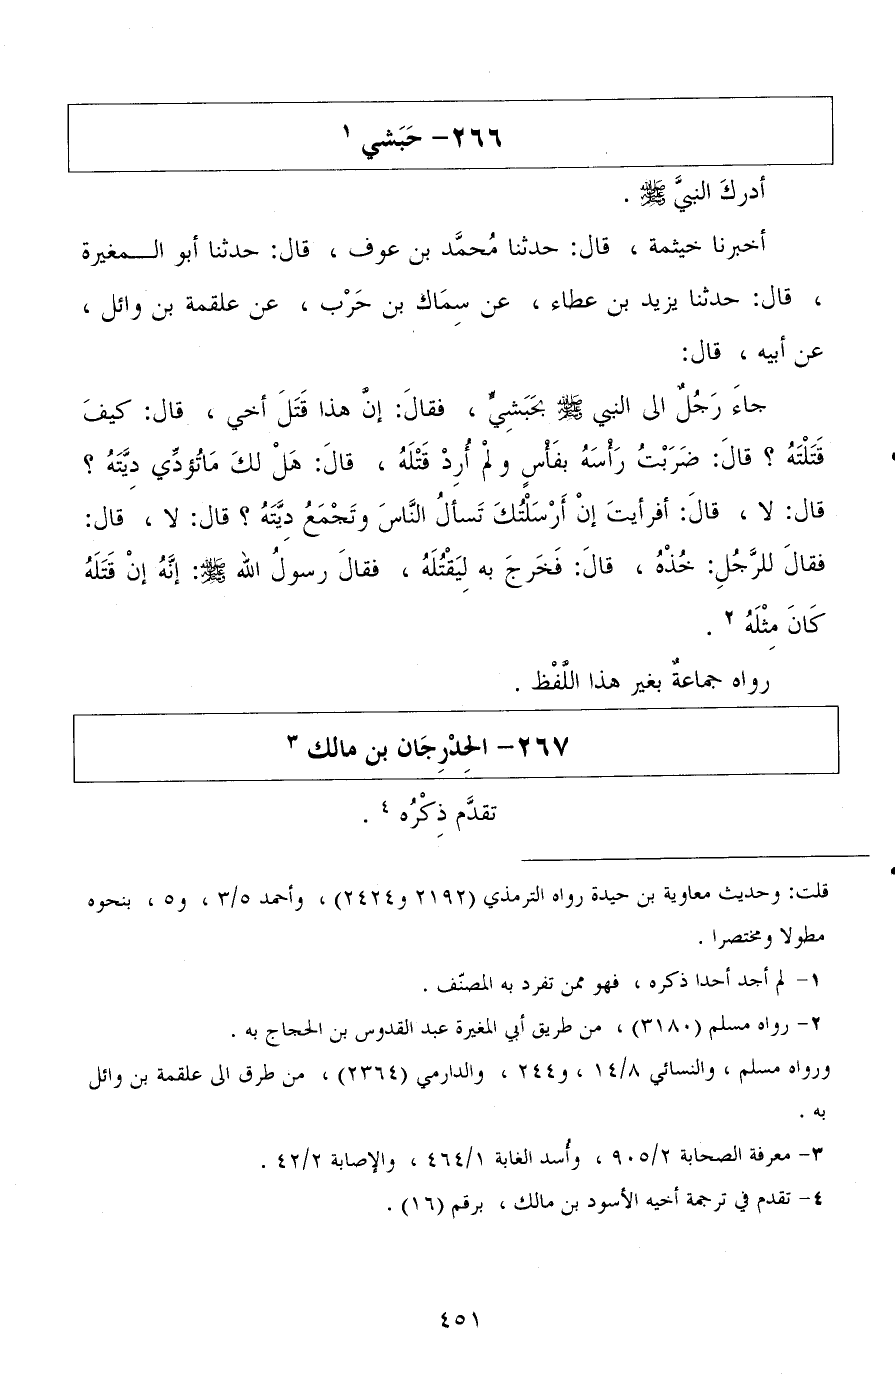 ٢٦٦- حَبَشي ١
أدركَ النبيَّ ﷺ .
أخبرنا خيثمة ، قال: حدثنا مُحمَّد بن عوف ، قال: حدثنا أبو الـــمغيرة
، قال: حدثنا يزيد بن عطاء ، عن سِمَاك بن حَرْب ، عن علقمة بن وائل ،
عن أبيه ، قال:
جاءَ رَجُلٌ الى النبي ﷺ بحَبَشِيٍّ ، فقالَ: إنَّ هذا قَتَلَ أخي ، قال: كيفَ
قَتَلْتَهُ ؟ قالَ: ضَرَبْتُ رَأْسَهُ بفَأْسٍ ولمْ أُرِدْ قَتْلَهُ ، قالَ: هَلْ لكَ مَاتُؤدِّي دِيَّتَهُ ؟
قالَ: لا ، قالَ: أفرأيتَ إنْ أَرْسَلْتُكَ تَسألُ النَّاسَ وتَجْمَعُ دِيَّتَهُ ؟ قال: لا ، قال:
فقالَ للرَّجُلِ: خُذْهُ ، قالَ: فَخَرجَ به لِيَقْتُلَهُ ، فقالَ رسولُ الله ﷺ: إنَّهُ إنْ قَتَلَهُ
كَانَ مِثْلَهُ ٢ .
رواه جماعةٌ بغير هذا اللَّفْظ .
٢٦٧- الحِدْرِجَان بن مالك ٣
تقدَّم ذِكْرُه ٤ .
قلت: وحديث معاوية بن حيدة رواه الترمذي (٢١٩٢ و٢٤٢٤) ، وأحمد ٣/٥ ، و٥ ، بنحوه
مطولا ومختصرا .
١- لم أجد أحدا ذكره ، فهو ممن تفرد به المصنّف .
٢- رواه مسلم (٣١٨٠) ، من طريق أبي المغيرة عبد القدوس بن الحجاج به .
ورواه مسلم ، والنسائي ١٤/٨ ، و٢٤٤ ، والدارمي (٢٣٦٤) ، من طرق الى علقمة بن وائل
به .
٣- معرفة الصحابة ٩٠٥/٢ ، وأُسد الغابة ٤٦٤/١ ، والإصابة ٤٢/٢ .
٤- تقدم في ترجمة أخيه الأسود بن مالك ، برقم (١٦) .
٤٥١